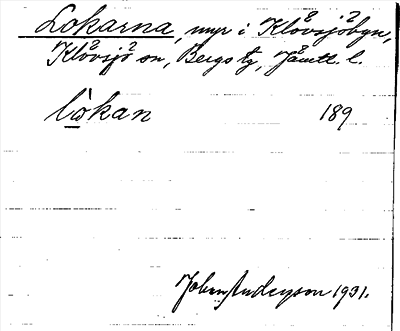 Lokarna, myr i Klövsjöbyn,
Klövsjö sn, Bergs tg, Jämtl. l.
lòkan 189
Johan Anderson 1931.